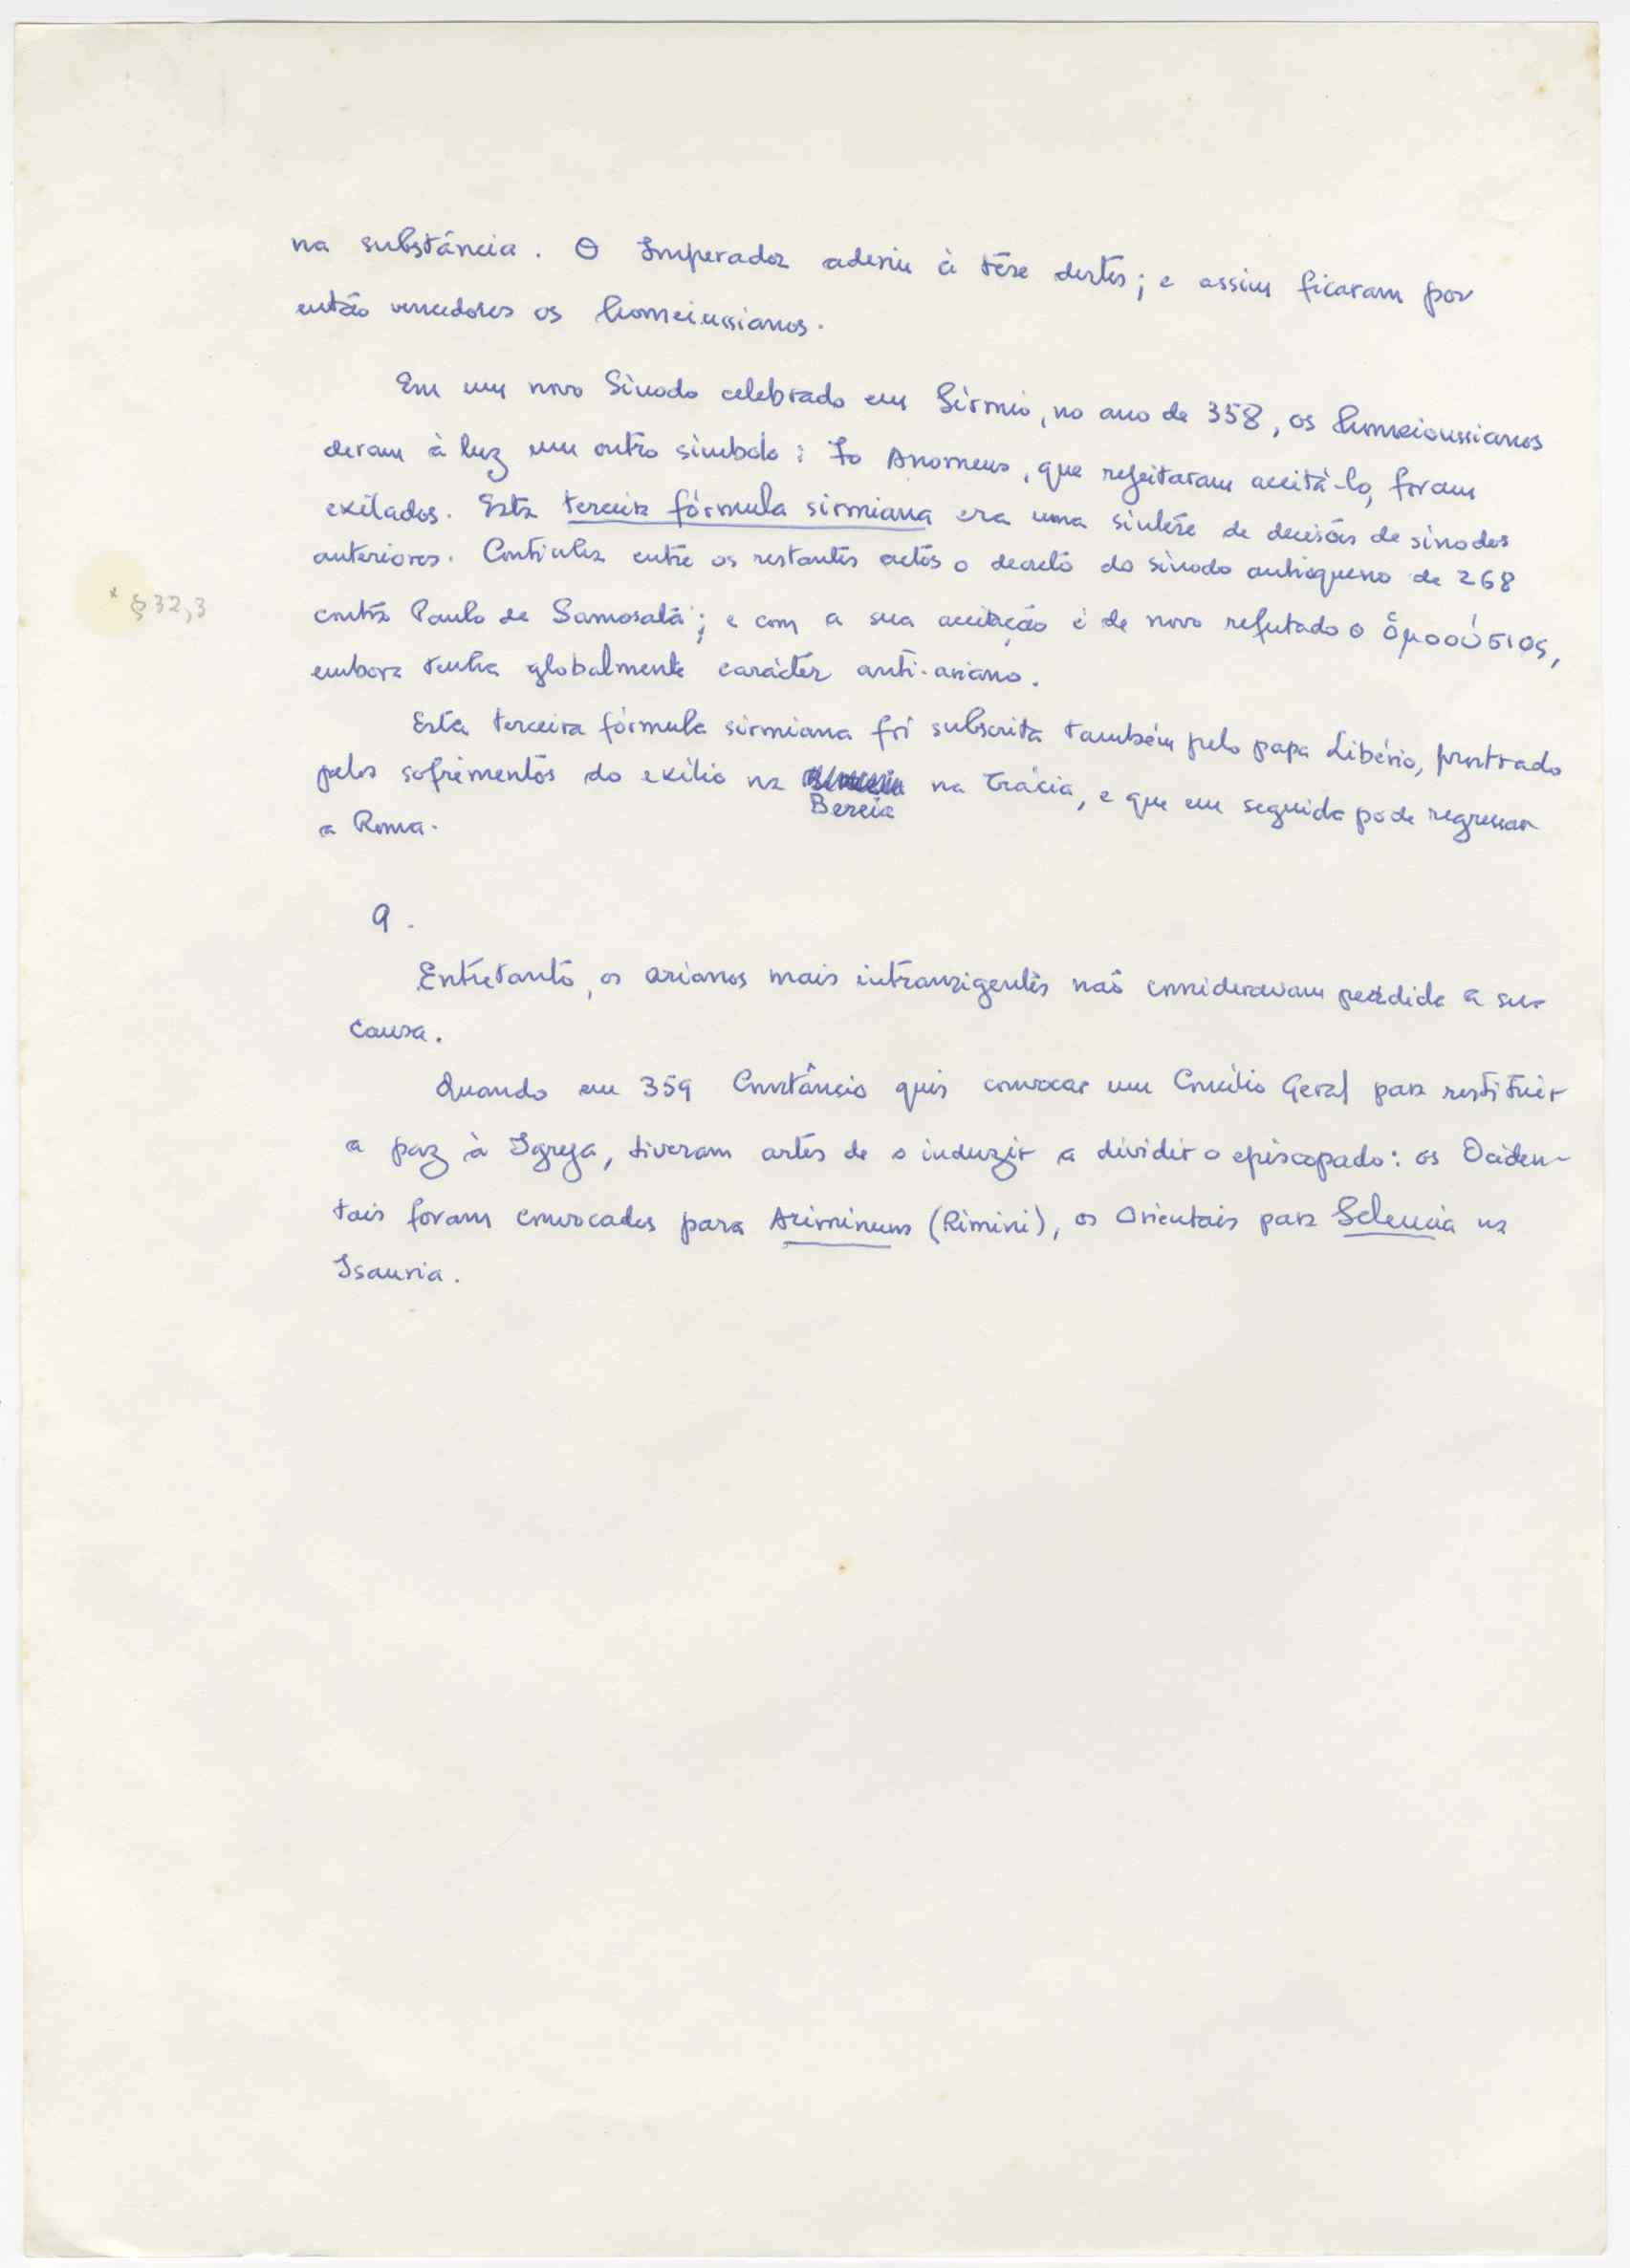 na substância. O Imperador aderiu à tése destes; e assim ficaram por
então vencedores os homeiussianos.
Em um novo Sínodo celebrado em Sírmio, no ano de 358, os homeioussianos
deram à luz um outro símbolo: Anomeus, que rejeitaram aceitá-lo, foram
exilados. Esta terceira fórmula sirmiana era uma síntese de decisões de sínodos
anteriores. Continha entre os restantes actos o decreto do sínodo antioqueno de 268
* § 32,3
contra Paulo de Samosata; e com a sua aceitação é de novo refutado o ὁμοούσιος,
embora tenha globalmente carácter anti-ariano.
Esta terceira fórmula sirmiana foi subscrita também pelo papa Libério, prostrado
pelos sofrimentos do exílio na na Trácia, e que em seguida pode regressar
Bereia
a Roma.
9.
Entretanto, os arianos mais intransigentes não consideravam perdida a sua
causa.
Quando em 359 Constâncio quis convocar um Concílio Geral para restituir
a paz à Igreja, tiveram artes de o induzir a dividir o episcopado: os Ociden-
tais foram convocados para Ariminum (Rimini), os Orientais para Seleucia na
Isauria.